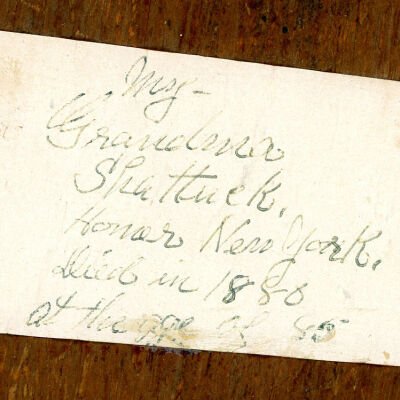 My-
Grandma
Shattuck,
Honar New York.
Died in 1880
at the age of 85